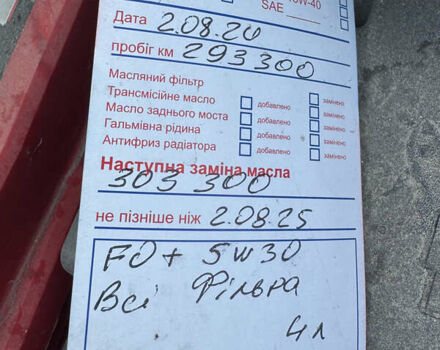 10W-40
SAE
Дата 2.08.24
пробіг км 293300
Масляний фільтр
Трансмісійне масло добавлено замінено
Масло заднього моста добавлено замінено
Гальмівна рідина добавлено замінено
Антифриз радіатора добавлено замінено
Наступна заміна масла
303 300
не пізніше ніж 2.08.25
FO + 5W30
Всі Фільтра
4л